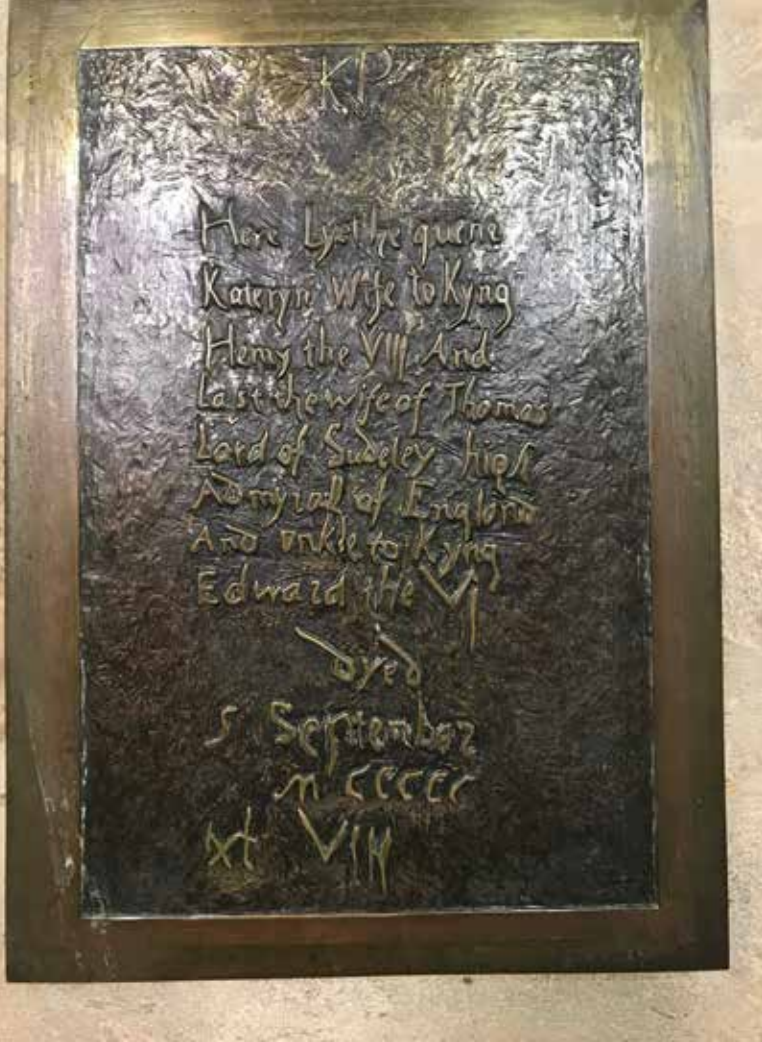 KP
Here Lyethe quene
Kateryn Wife to Kyng
Henry the VIII And
Last the wife of Thomas
Lord of Sudeley high
Admyrall of England
And onkle to Kyng
Edward the VI
dyed
5 September
MCCCCC
xl VIII